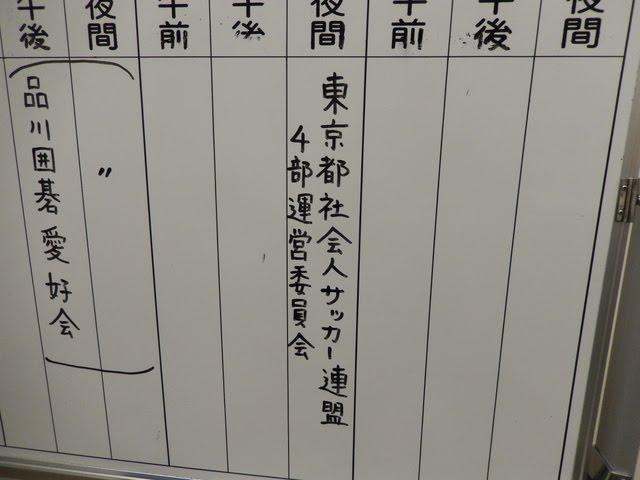 午後
夜間
午前
午後
夜間
午前
午後
夜間
品川囲碁愛好会
〃
東京都社会人サッカー連盟
4部運営委員会